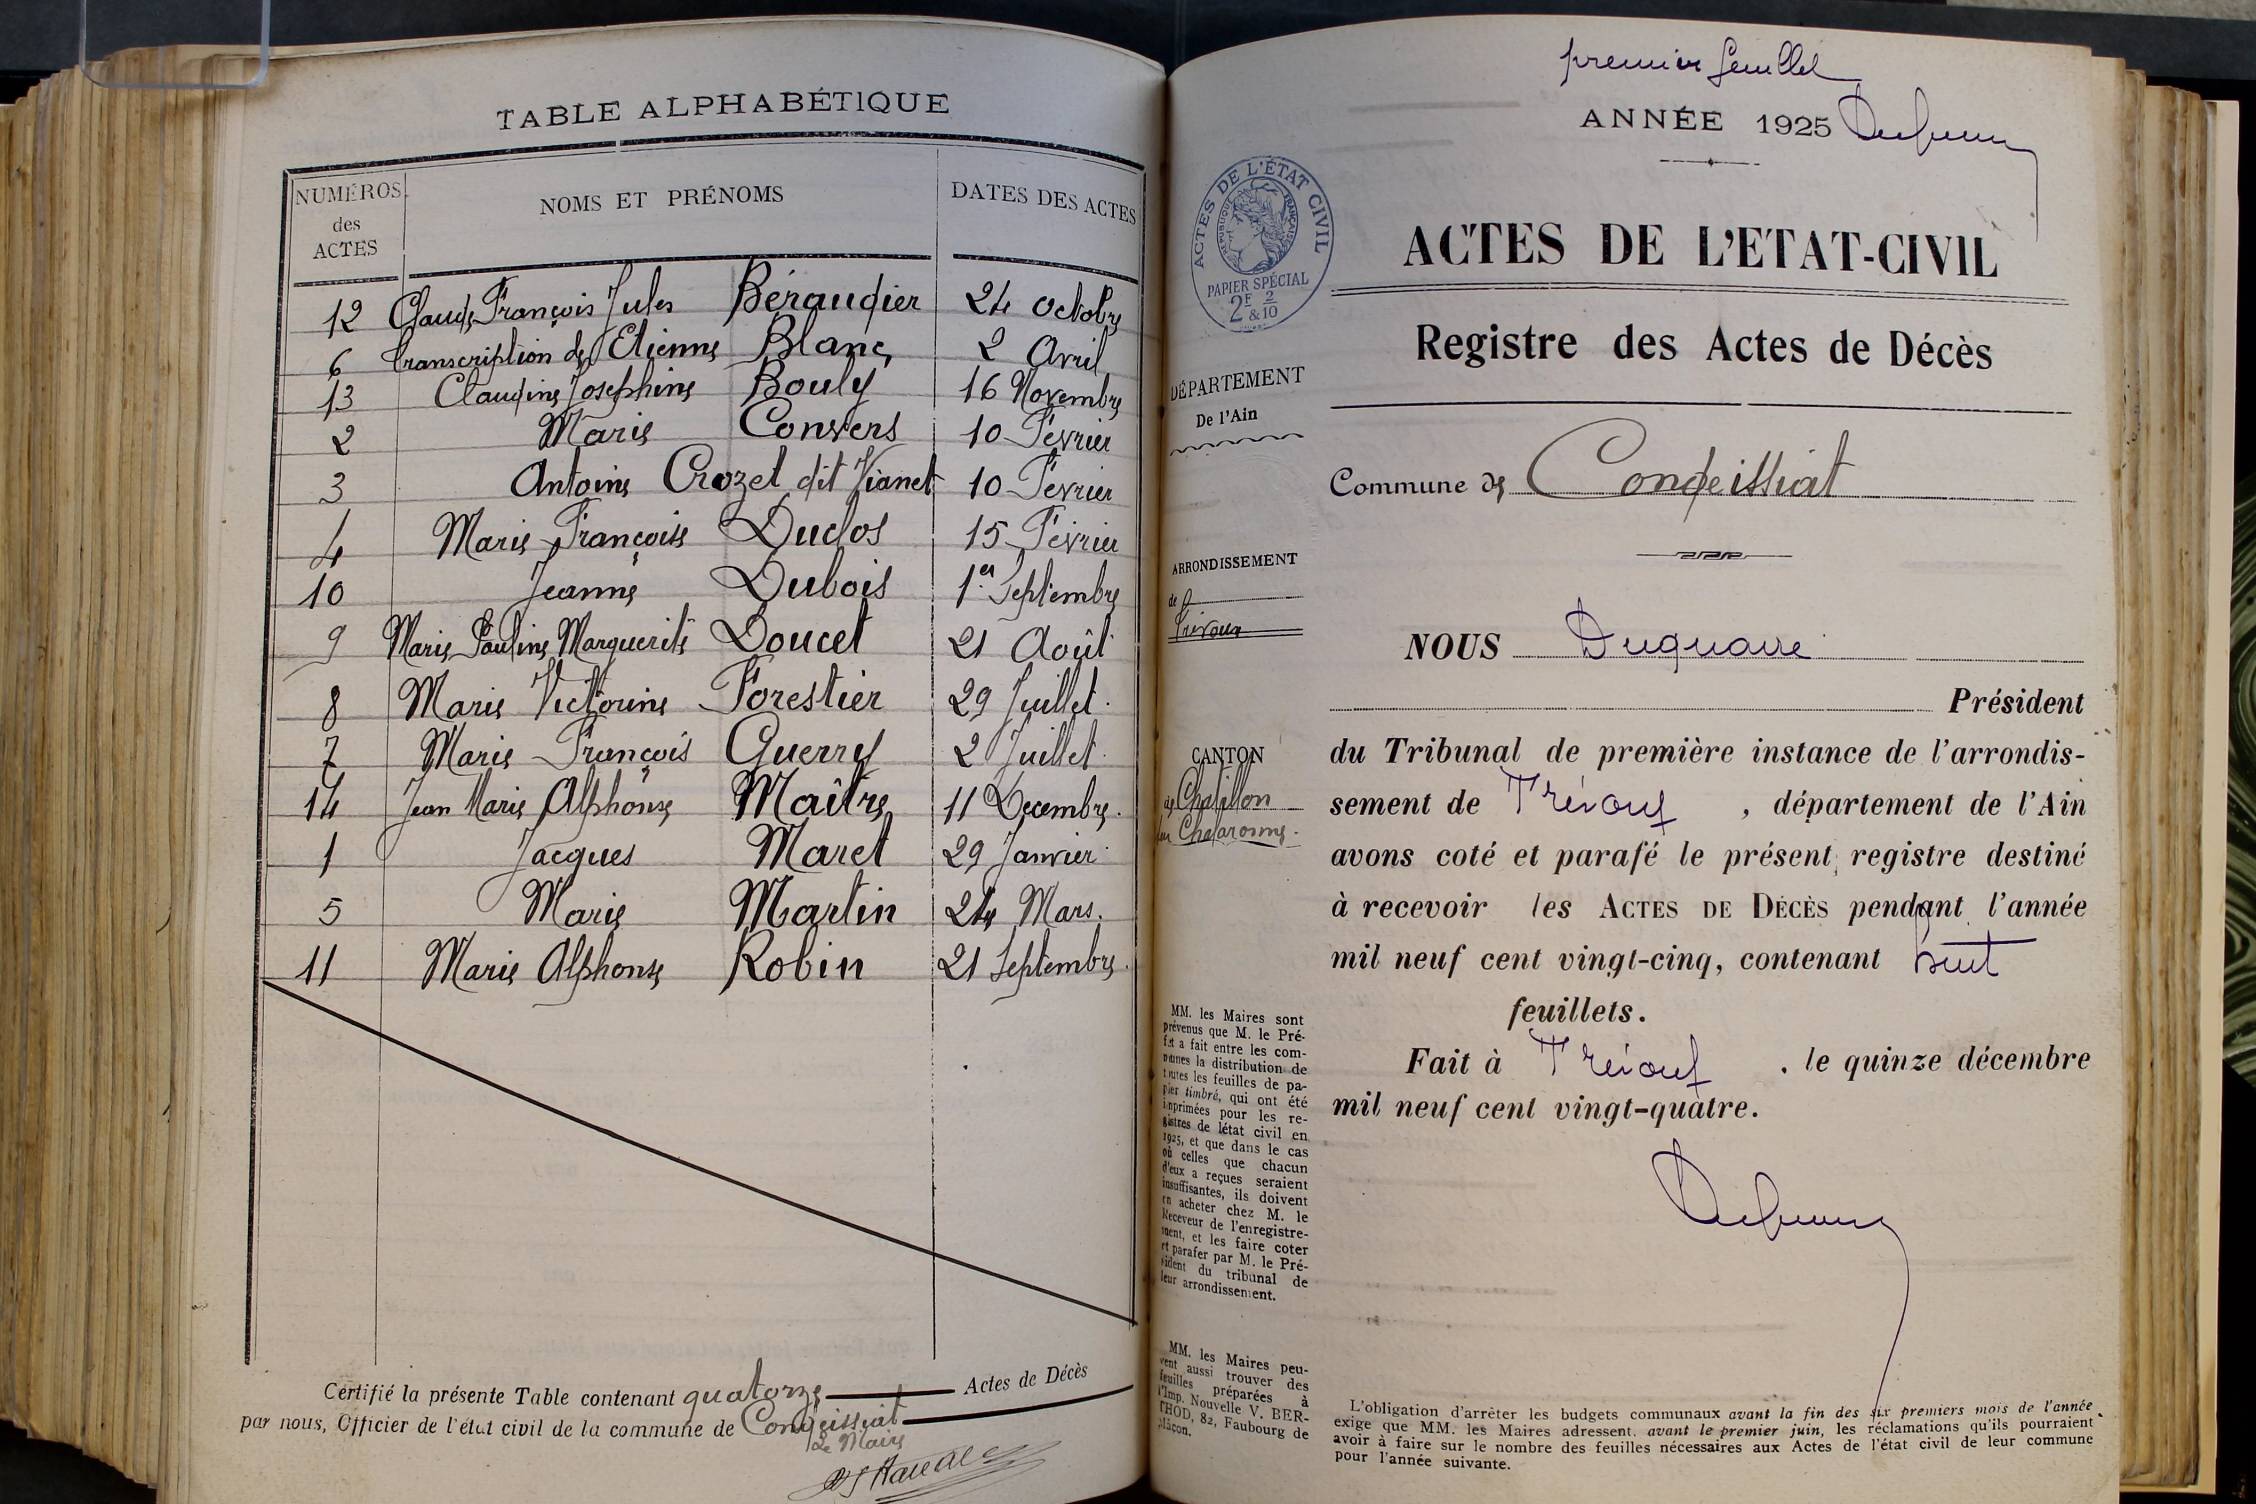 TABLE ALPHABÉTIQUE
NUMÉROS des ACTES NOMS ET PRÉNOMS DATES DES ACTES
12 Claude François Jules Béraudier 24 Octobre
6 transcription de Etienne Blanc 2 Avril
13 Claudine Josephine Bouly 16 Novembre
2 Marie Convers 10 Fevrier
3 Antoine Crozet dit Vianet 10 Fevrier
4 Marie Françoise Duclos 15 Février
10 Jeanne Dubois 1er Septembre
9 Marie Pauline Marguerite Doucet 21 Août
8 Marie Victorine Forestier 29 Juillet.
7 Marie François Guerry 2 Juillet.
14 Jean Marie Alphonse Maître 11 Decembre.
1 Jacques Maret 29 Janvier
5 Marie Martin 24 Mars.
11 Marie Alphonse Robin 21 Septembre.
Certifié la présente Table contenant quatorze Actes de Décès
par nous, Officier de l'état civil de la commune de Condeissiat
Le Maire
premier feuillet
ANNÉE 1925
ACTES DE L'ÉTAT CIVIL
RÉPUBLIQUE FRANÇAISE
PAPIER SPÉCIAL
2F 2
&10
ACTES DE L'ETAT-CIVIL
Registre des Actes de Décès
DÉPARTEMENT
De l'Ain
Commune de Condeissiat
ARRONDISSEMENT
de
Trévoux
NOUS Duquaire
Président
CANTON
de Chatillon
sur Chalaronne.
du Tribunal de première instance de l'arrondis-
sement de Trévoux, département de l'Ain
avons coté et parafé le présent registre destiné
à recevoir les ACTES DE DÉCÈS pendant l'année
mil neuf cent vingt-cinq, contenant huit
feuillets.
Fait à Trévoux, le quinze décembre
mil neuf cent vingt-quatre.
MM. les Maires sont
prévenus que M. le Pré-
fet a fait entre les com-
munes la distribution de
toutes les feuilles de pa-
pier timbré, qui ont été
imprimées pour les re-
gistres de létat civil en
1925, et que dans le cas
où celles que chacun
d'eux a reçues seraient
insuffisantes, ils doivent
en acheter chez M. le
Receveur de l'enregistre-
ment, et les faire coter
et parafer par M. le Pré-
sident du tribunal de
leur arrondissement.
MM. les Maires peu-
vent aussi trouver des
feuilles préparées à
l'Imp. Nouvelle V. BER-
THOD, 82, Faubourg de
Mâcon.
L'obligation d'arrêter les budgets communaux avant la fin des six premiers mois de l'année
exige que MM. les Maires adressent, avant le premier juin, les réclamations qu'ils pourraient
avoir à faire sur le nombre des feuilles nécessaires aux Actes de l'état civil de leur commune
pour l'année suivante.